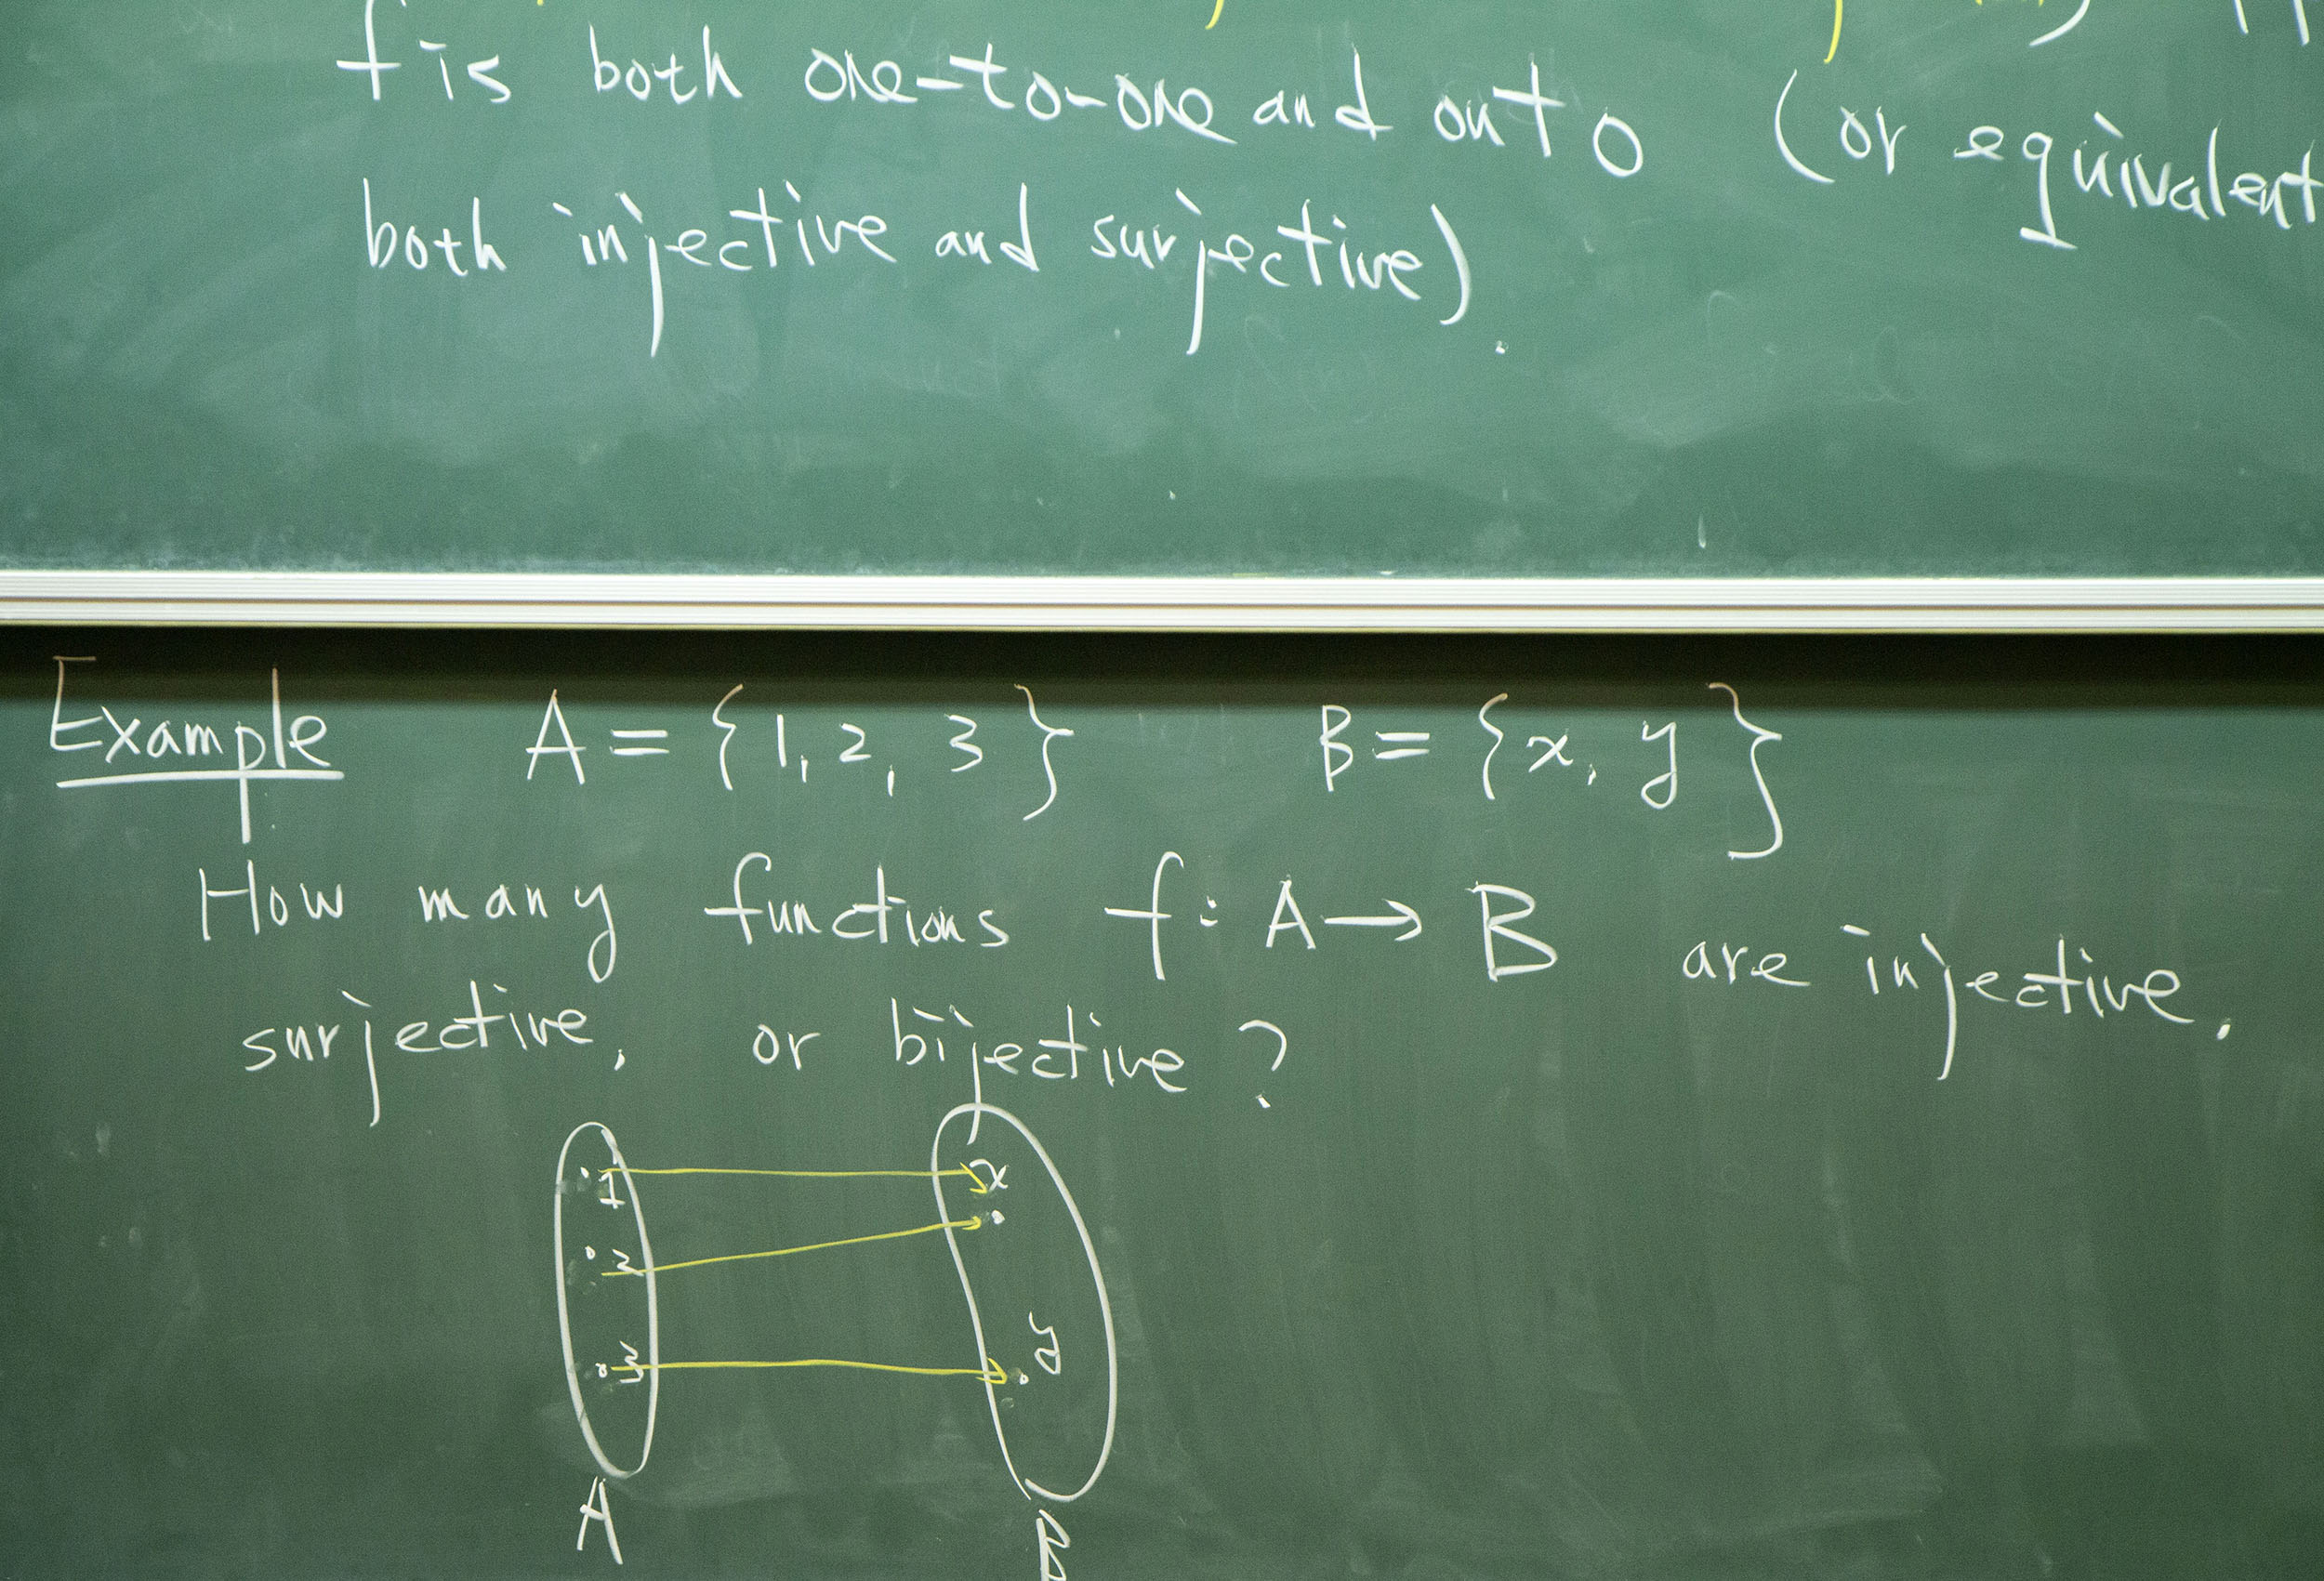 f is both one-to-one and onto (or equivalent
both injective and surjective).
Example A = {1, 2, 3} B = {x, y}
How many functions f: A → B are injective,
surjective, or bijective?
1 x
2
3 y
A B